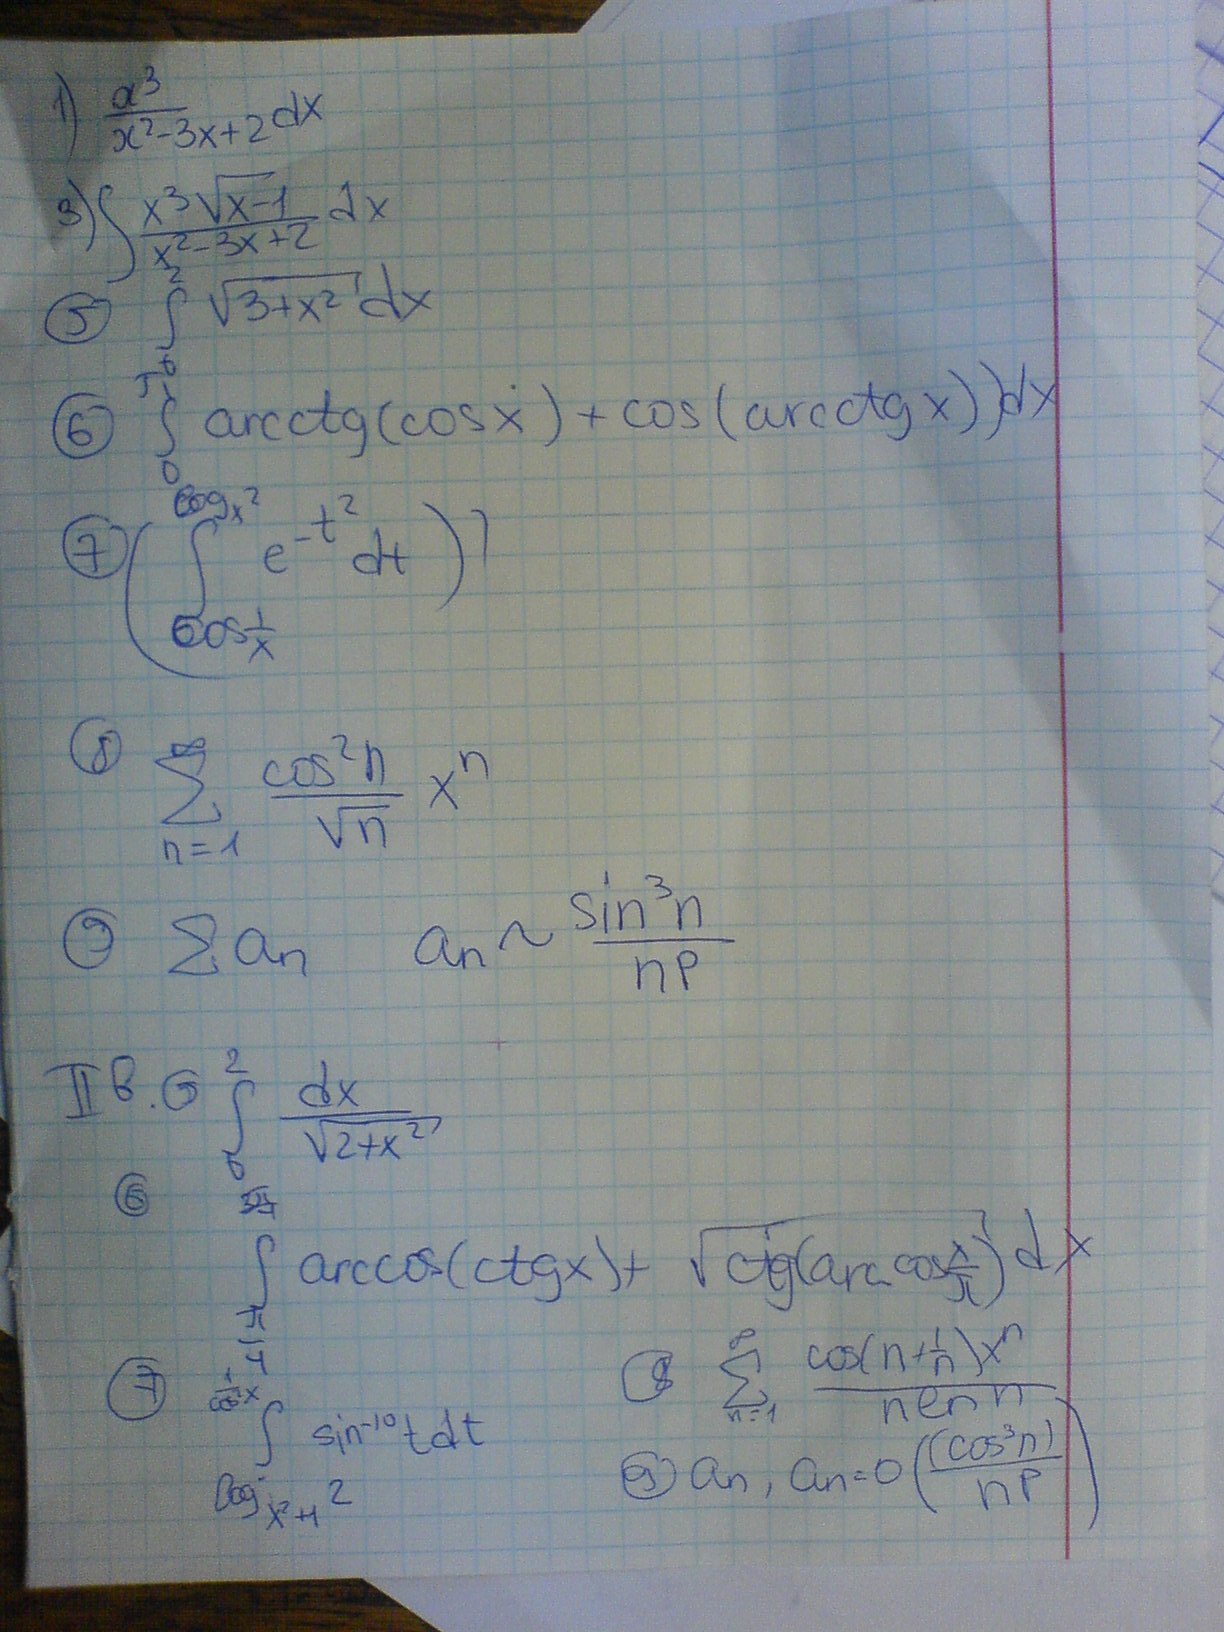 1) x³/(x²-3x+2) dx
3) ∫ x³√(x-1)/(x²-3x+2) dx
⑤ ∫₀² √(3+x²) dx
⑥ ∫₀^π arcctg(cosx) + cos(arcctgx))dx
⑦ (∫_{cos 1/x}^{log_x 2} e^{-t²} dt)'
⑧ ∑_{n=1}^∞ cos²n/√n xⁿ
⑨ ∑ aₙ aₙ ~ sin³n/n^p
II в. ∫₀² dx/√(2+x²)
⑥ ∫_{π/4} arccos(ctgx)+ √(ctg(arccos x/π)) dx
⑦ ∫_{log_{x²+1} 2} sin⁻¹⁰t dt
⑧ ∑_{n=1}^∞ cos(n+1/n)xⁿ/(n ln n)
⑨ aₙ, aₙ=O((cos³n)/n^p)